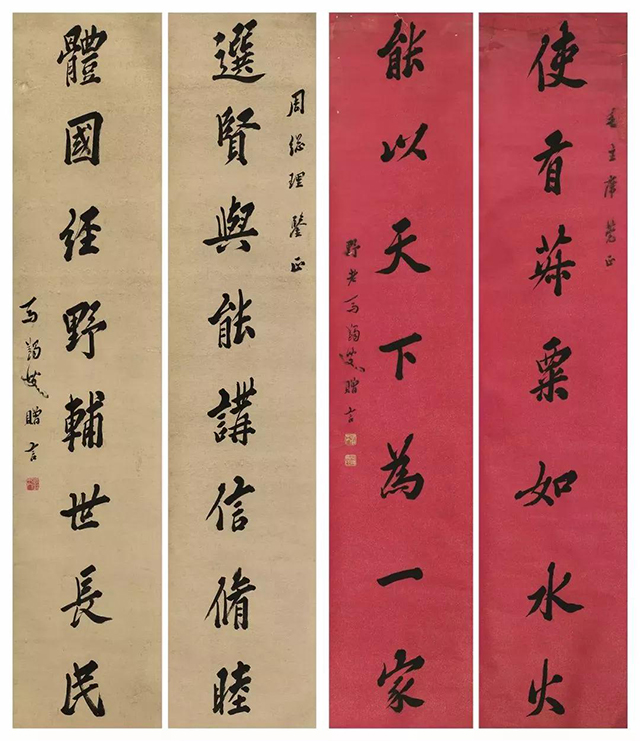 使有菽粟如水火
毛主席 莞正
能以天下為一家
野老馬蠲叟贈言
周總理 鑒正
選賢與能講信脩睦
體國經野輔世長民
馬蠲叟贈言